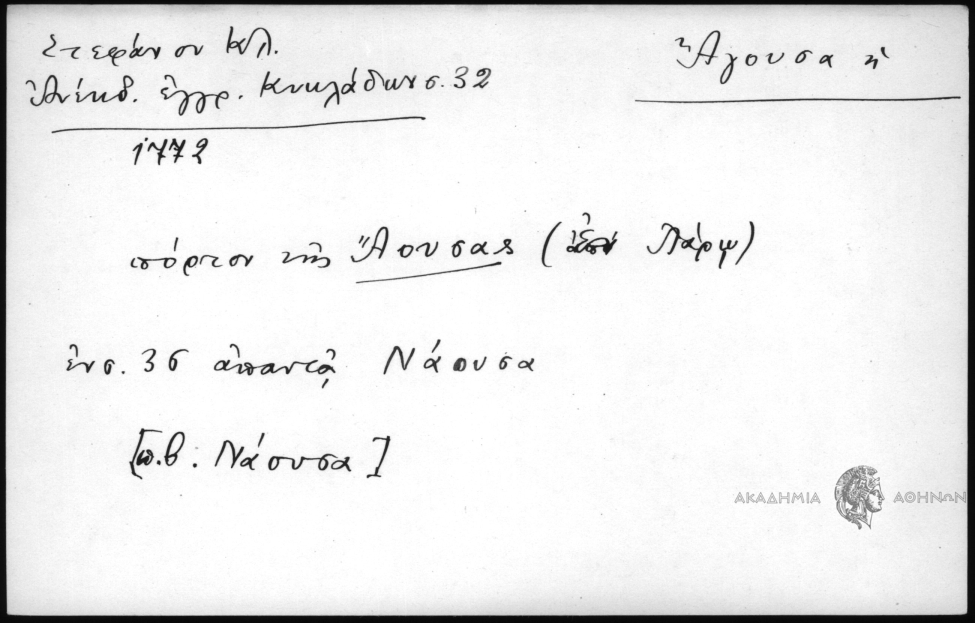 Στεφάνου Κλ.
Ἀνέκδ. ἐγγρ. Κυκλάδων σ. 32
Ἄγουσα ἡ
1772
πόρτου τῆς Ἄουσας (ἐν Πάρῳ)
ἐν σ. 36 ἀπαντᾷ Νάουσα
[π.β. Νάουσα]
ΑΚΑΔΗΜΙΑ ΑΘΗΝΩΝ